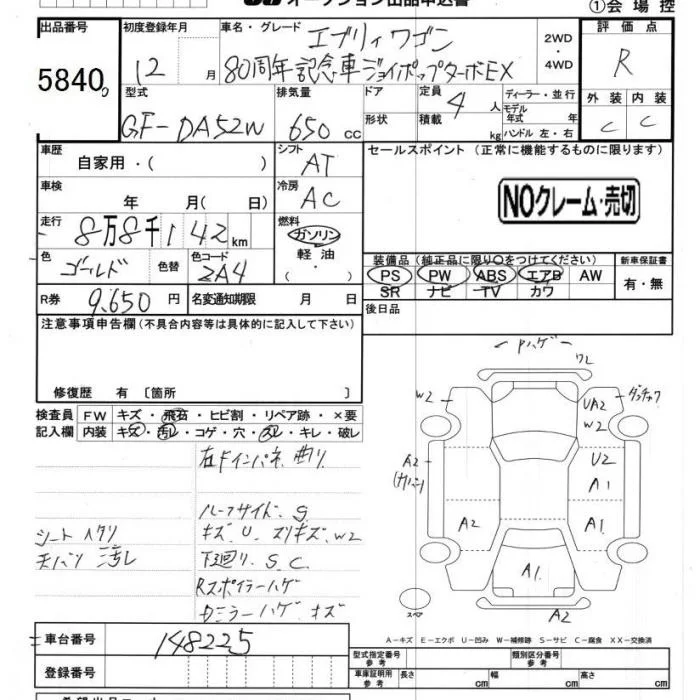 オークション出品申込書
①会場控
出品番号 初度登録年月 車名・グレード 評価点
5840 12 月 エブリィワゴン 2WD・4WD R
80周年記念車ジョイポップターボEX
型式 排気量 ドア 定員 4 人 ディーラー・並行 外装 内装
GF-DA52W 650 cc 形状 積載 kg モデル年式 年 ハンドル 左・右 C C
車歴 自家用・( ) シフト AT セールスポイント (正常に機能するものに限ります)
車検 年 月( 日) 冷房 AC NOクレーム・売切
走行 8万8千142 km 燃料 ガソリン・軽油・
色 ゴールド 色替 色コード 2A4 装備品 (純正品に限り○をつけてください) 新車保証書
PS PW ABS エアB AW 有・無
SR ナビ TV カワ
R券 9,650 円 名変通知期限 月 日 後日品
注意事項申告欄 (不具合内容等は具体的に記入して下さい)
修復歴 有 〔箇所 〕
検査員 FW キズ・飛石・ヒビ割・リペア跡・×要
記入欄 内装 キズ・汚レ・コゲ・穴・スレ・キレ・破レ
右Fインパネ曲り
ルーフサイド.S
シート ヘタリ キズ.U.スリキズ.W2
天バリ 汚レ 下廻り.S.C
Rスポイラーハゲ
カミラーハゲ.キズ
Pハゲ
ワレ
W2 UA2 W2
A2 U2 A1
A2 A1
A1
スペア A2
A-キズ E-エクボ U-凹み W-補修跡 S-サビ C-腐食 XX-交換済
車台番号 148225 型式指定番号 参考 類別区分番号 参考
登録番号 車庫証明用 参考 長さ cm 幅 cm 高さ cm